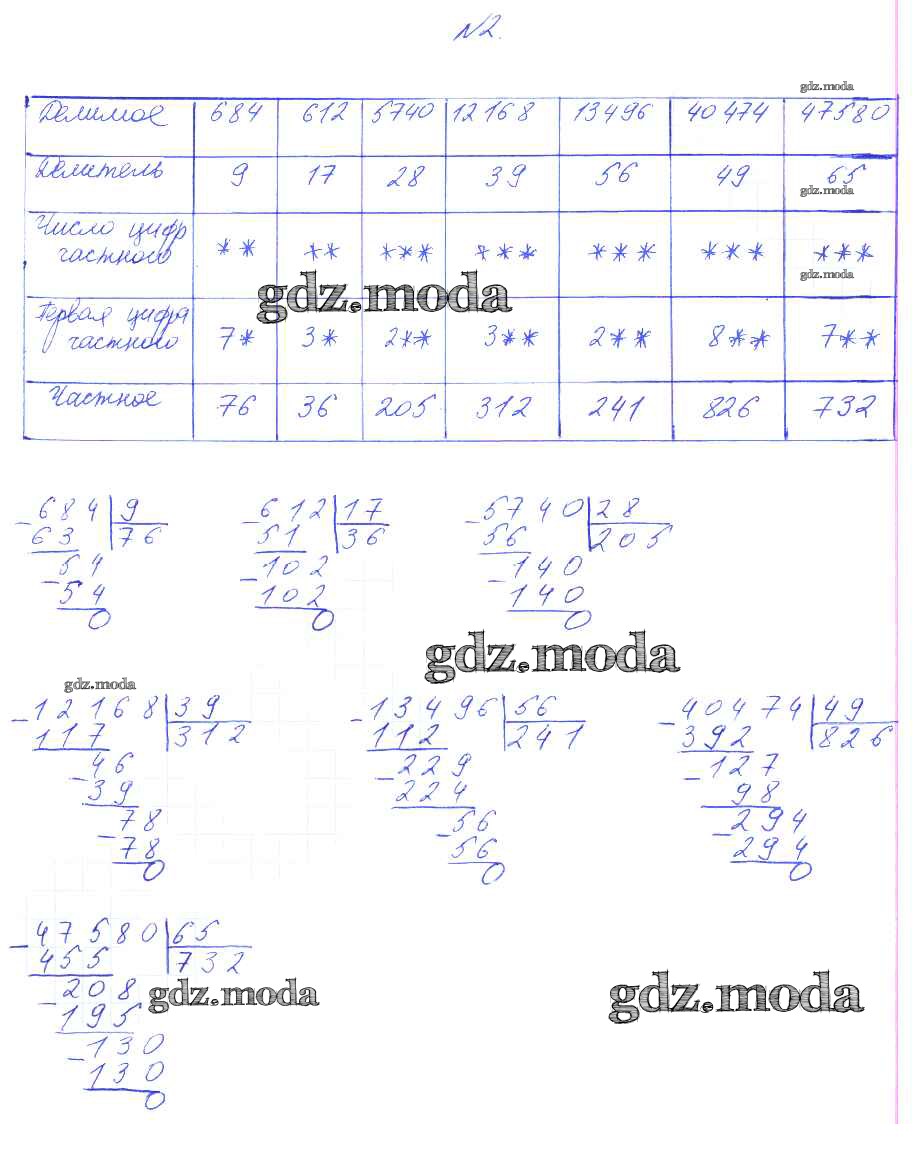 №2.
gdz.moda
Делимое 684 612 5740 12168 13496 40474 47580
Делитель 9 17 28 39 56 49 65
gdz.moda
Число цифр
частного ** ** *** *** *** *** ***
gdz.moda
gdz.moda
Первая цифра
частного 7* 3* 2** 3** 2** 8** 7**
Частное 76 36 205 312 241 826 732
-684|9 -612|17 -5740|28
63 |76 51 |36 56 |205
-54 -102 -140
54 102 140
0 0 0
gdz.moda
gdz.moda
-12168|39 -13496|56 -40474|49
117 |312 112 |241 392 |826
-46 -229 -127
39 224 98
-78 -56 -294
78 56 294
0 0 0
-47580|65
455 |732
-208 gdz.moda gdz.moda
195
-130
130
0